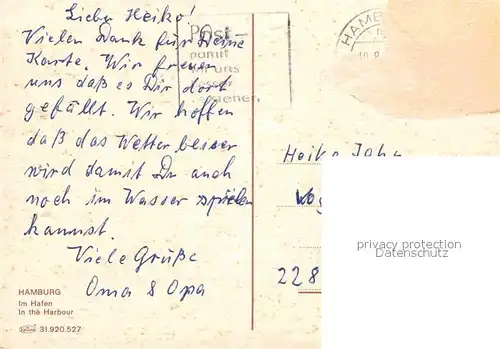 Lieber Heiko!
Vielen Dank für Deine
Karte. Wir freuen
uns daß es Dir dort
gefällt. Wir hoffen
daß das Wetter besser
wird damit Du auch
noch im Wasser spielen
kannst.
Viele Grüße
Oma & Opa
HAMBURG
Im Hafen
In the Harbour
31.920.527
Post
damit
uns
HAMB
Heiko John
228
privacy protection
AnsichtskartenVersand.com